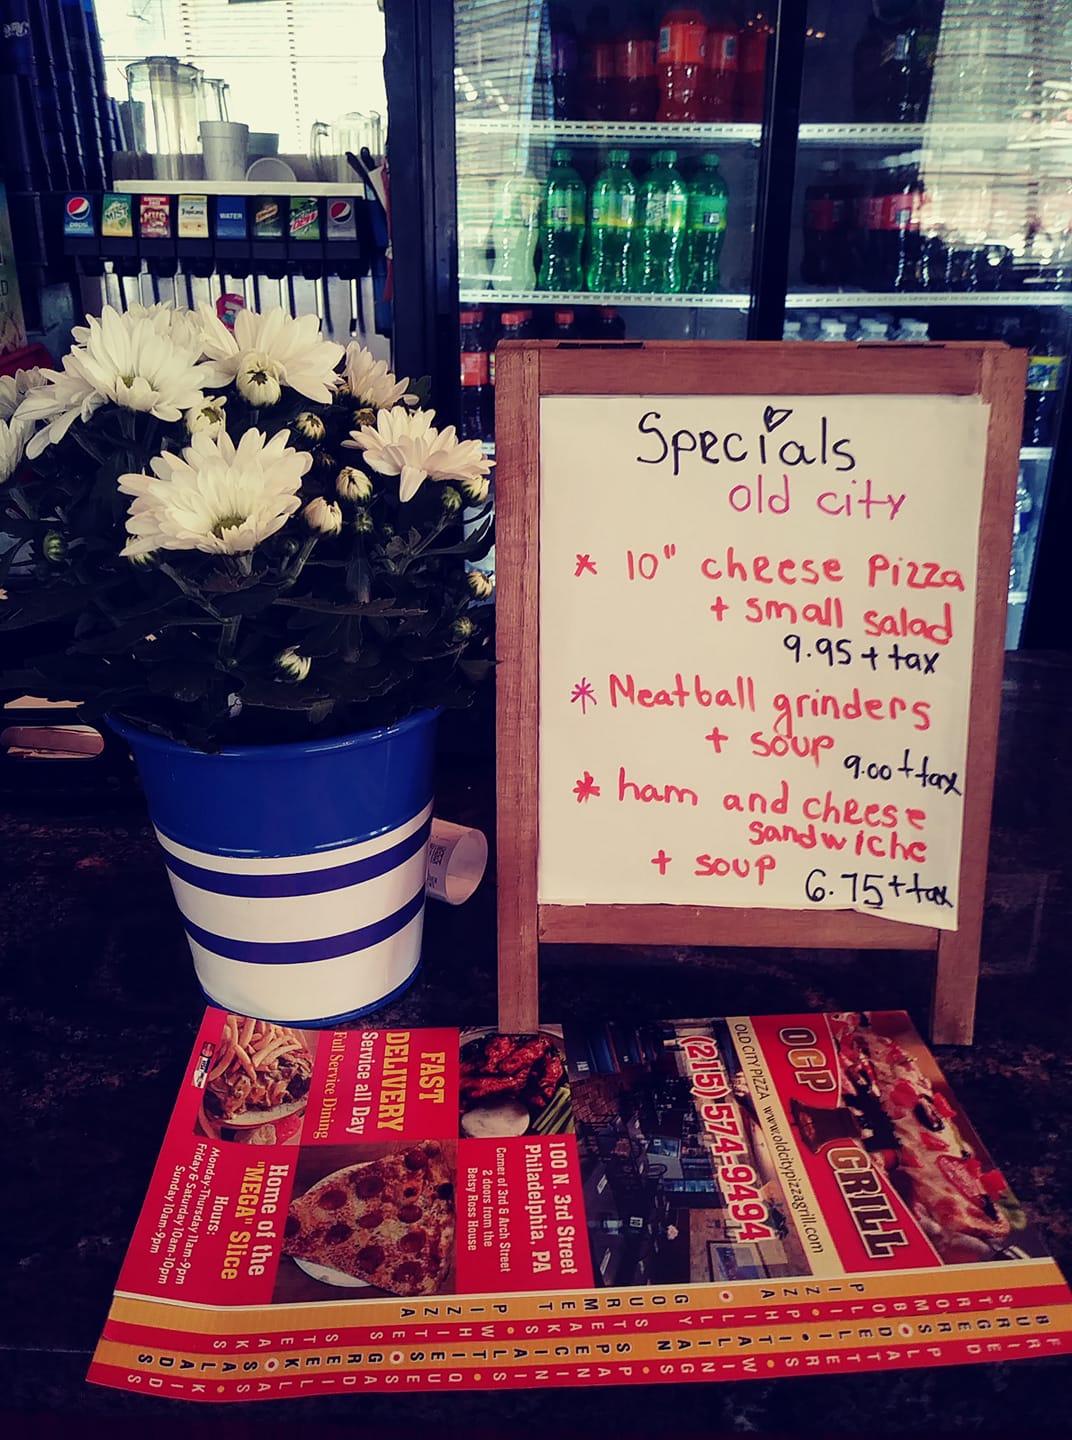 pepsi
MIST
MUG
Tropicana
WATER
Specials
old city
* 10" cheese Pizza
+ small salad
9.95 + tax
* Meatball grinders
+ soup 9.00 + tax
* ham and cheese
sandwiche
+ soup 6.75 + tax
OGP GRILL
OLD CITY PIZZA www.oldcitypizzagrill.com
(215) 574-9494
100 N. 3rd Street
Philadelphia, PA
Corner of 3rd & Arch Street
2 doors from the
Betsy Ross House
FAST
DELIVERY
Service all Day
Full Service Dining
Home of the
"MEGA" Slice
Hours:
Monday-Thursday 11am-9pm
Friday & Saturday 10am-10pm
Sunday 10am-9pm
GOURMET PIZZA
WHITE
STEAKS
KIDS
SALADS